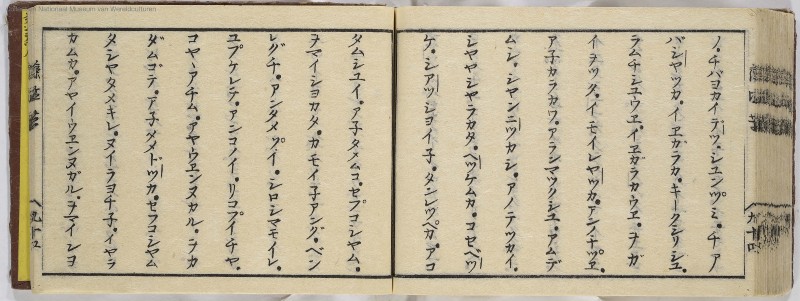 Nationaal Museum van Wereldculturen
ノ。チバヨカイデヅ。シユンヅミ。チア
バシヤツカ。イヱガラカ。キークシリシユ
ラムチシユウヱ。イヱガラカウヱ。ヲガ
イヲツタ。イモイレヤツカ。アンノチツヱ
ア子カラカワ。アラシマツクシユ。アムデ
ムシ。シヤンニツカシ。アノテツカイ。
シヤヤシヤラカタ。ベツケムカ。コセベツ
ケ。シアツシヨイ子。タンレツペカ。アコ
九十四
タムシユイ。ア子タメムコ。セプコシヤム。
ヲマイシヨカタ。カモイ子アング。ベン
レグチ。アンタメヅイ。シロシマモイレ。
ユプケレテ。アンコノイ。リコプイチヤ。
コヤヽアチム。アヤウヱンヌカル。ヲカ
ダムゴテ。ア子ダメドツカ。セフコシヤム
タシヤタメキレ。ヌイラヨチ子。イヤラ
カムカ。アヤイウヱンヌカル。ヲマイシヨ
九十五